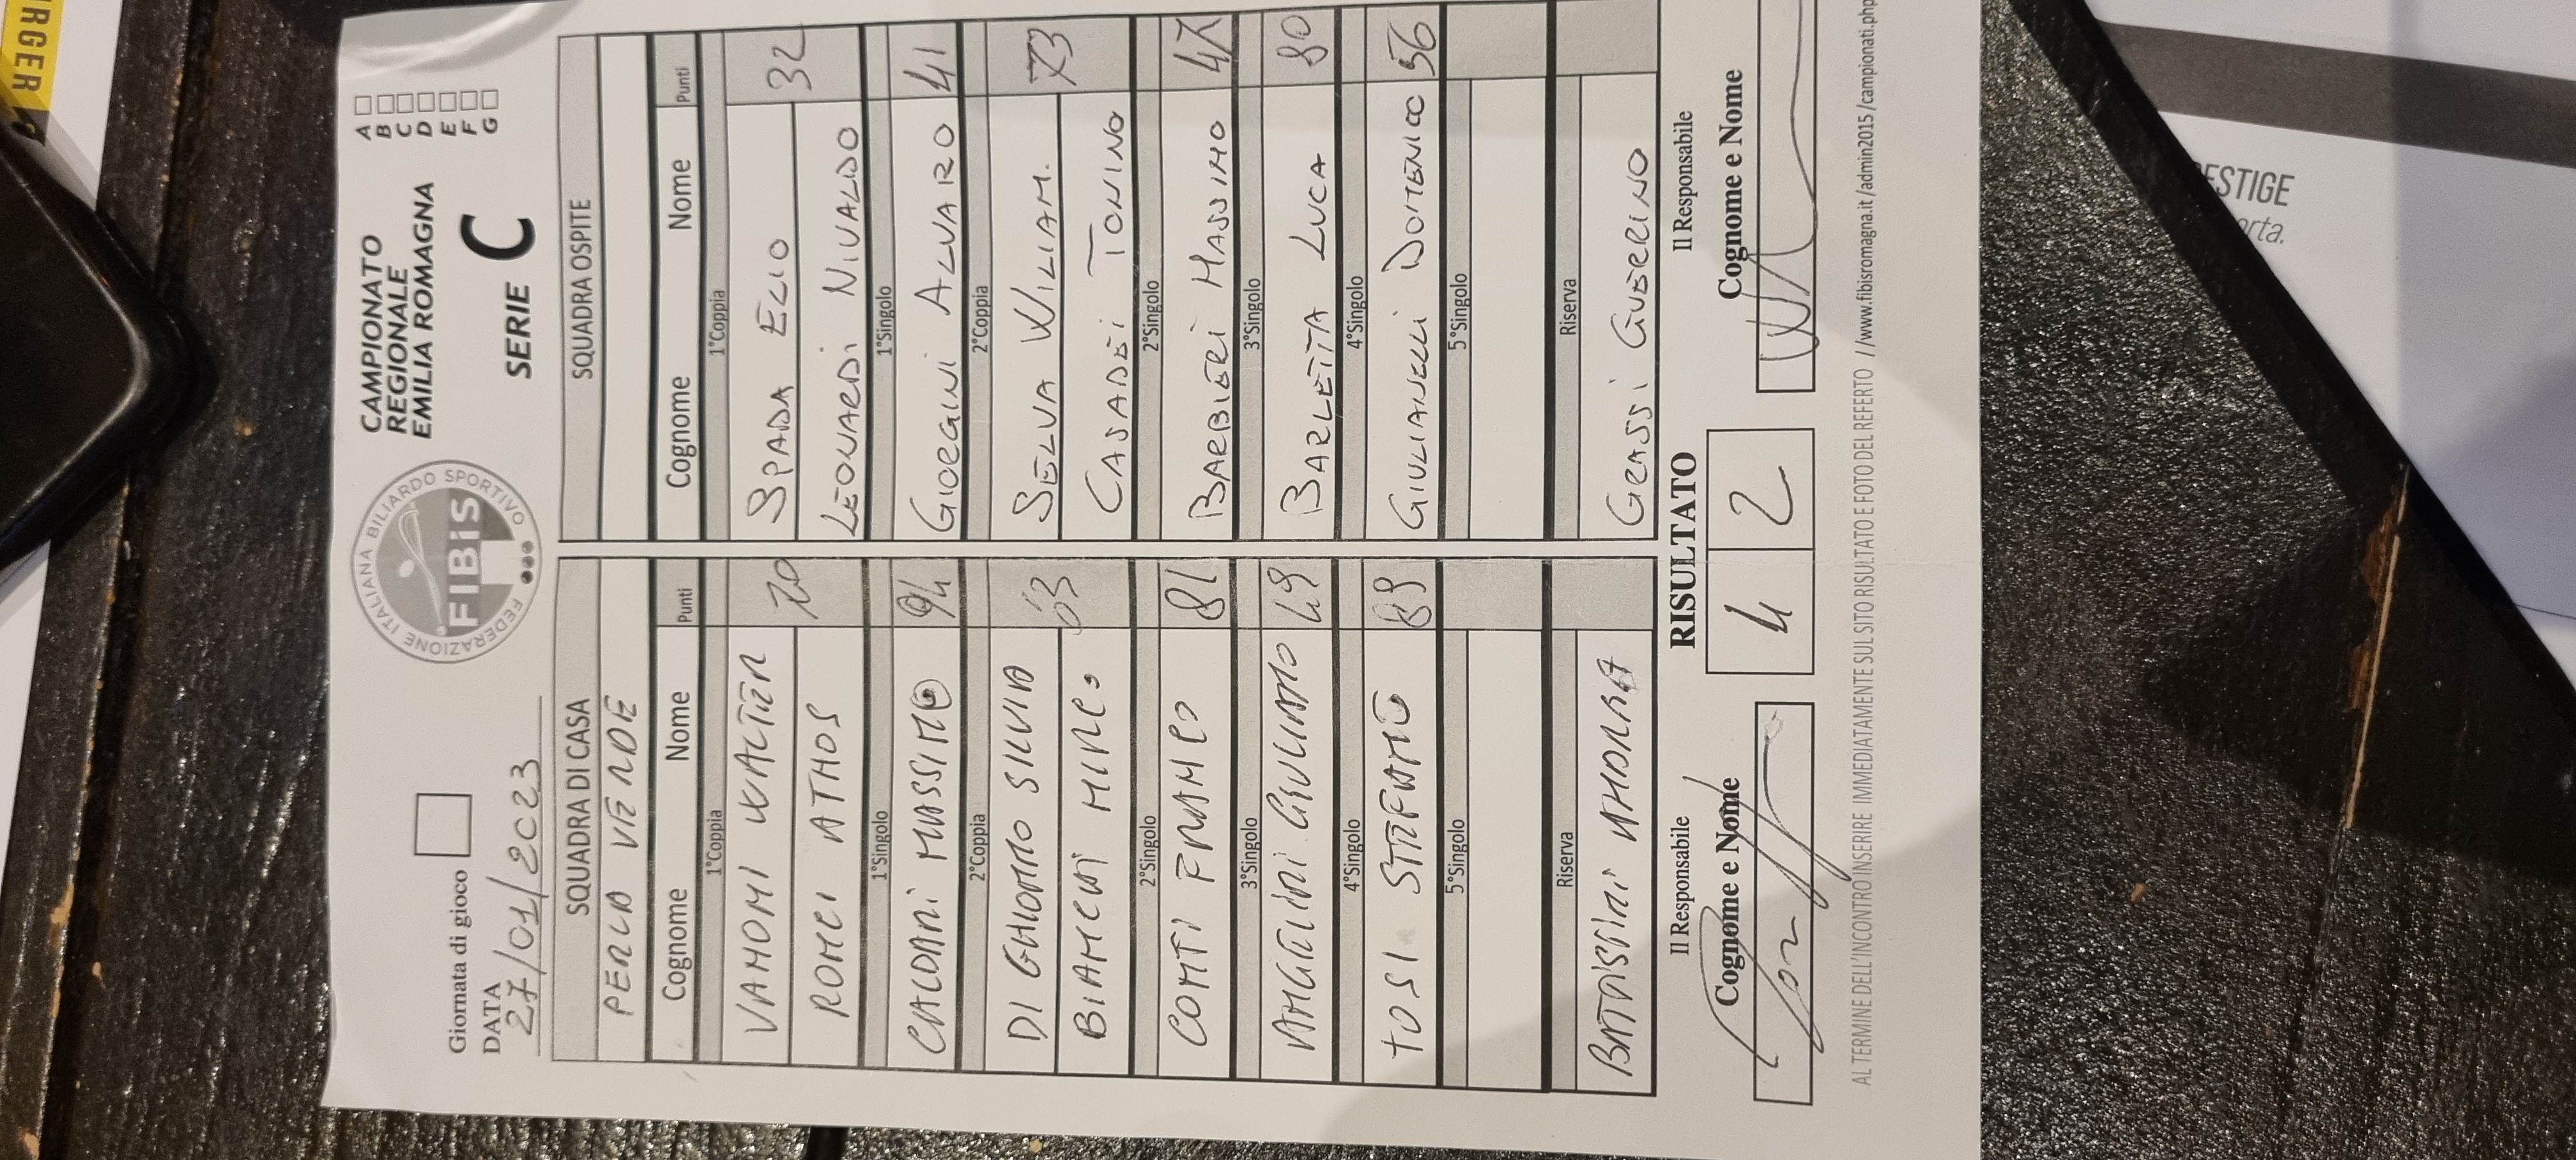 Giornata di gioco
DATA
27/01/2023
FEDERAZIONE ITALIANA BILIARDO SPORTIVO
FIBiS
CAMPIONATO
REGIONALE
EMILIA ROMAGNA
SERIE C
A
B
C
D
E
F
G
SQUADRA DI CASA SQUADRA OSPITE
PERLA VERDE
Cognome Nome Punti Cognome Nome Punti
1°Coppia 1°Coppia
VANONI WALTER 70 SPADA ELIO 32
RONCI ATHOS LEOUARDI NIVALDO
1°Singolo 1°Singolo
CALDARI MASSIMO 94 GIORGINI ALVARO 41
2°Coppia 2°Coppia
DI GHIONNO SILVIO 63 SELVA WILIAM. 73
BIANCHI MIRCO CASADEI TONINO
2°Singolo 2°Singolo
CONTI FRANCO 81 BARBIERI MASSIMO 47
3°Singolo 3°Singolo
ANGELINI GIULIANO 49 BARLETTA LUCA 80
4°Singolo 4°Singolo
TOSI STEFANO 89 GIULIANELLI DOMENICO 56
5°Singolo 5°Singolo
Riserva Riserva
BATTISTINI ANDREA GRASSI GUERRINO
Il Responsabile RISULTATO Il Responsabile
Cognome e Nome 4 2 Cognome e Nome
AL TERMINE DELL'INCONTRO INSERIRE IMMEDIATAMENTE SUL SITO RISULTATO E FOTO DEL REFERTO //www.fibisromagna.it/admin2015/campionati.php
RGER
ESTIGE
orta.